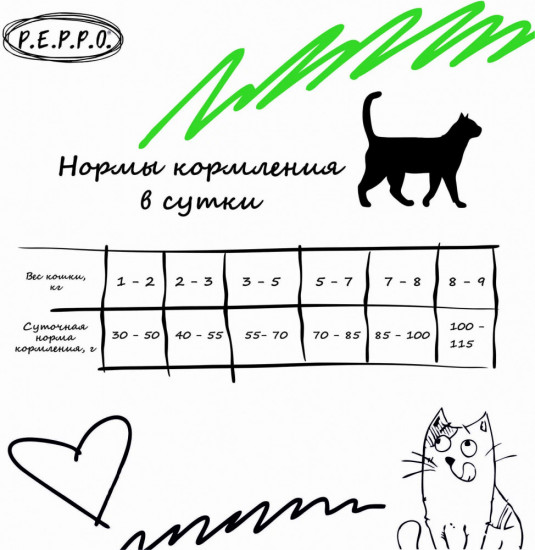 P.E.P.P.O.
Нормы кормления
в сутки
Вес кошки, 1 - 2 2 - 3 3 - 5 5 - 7 7 - 8 8 - 9
кг
Суточная 30 - 50 40 - 55 55- 70 70 - 85 85 - 100 100 -
норма 115
кормления, г